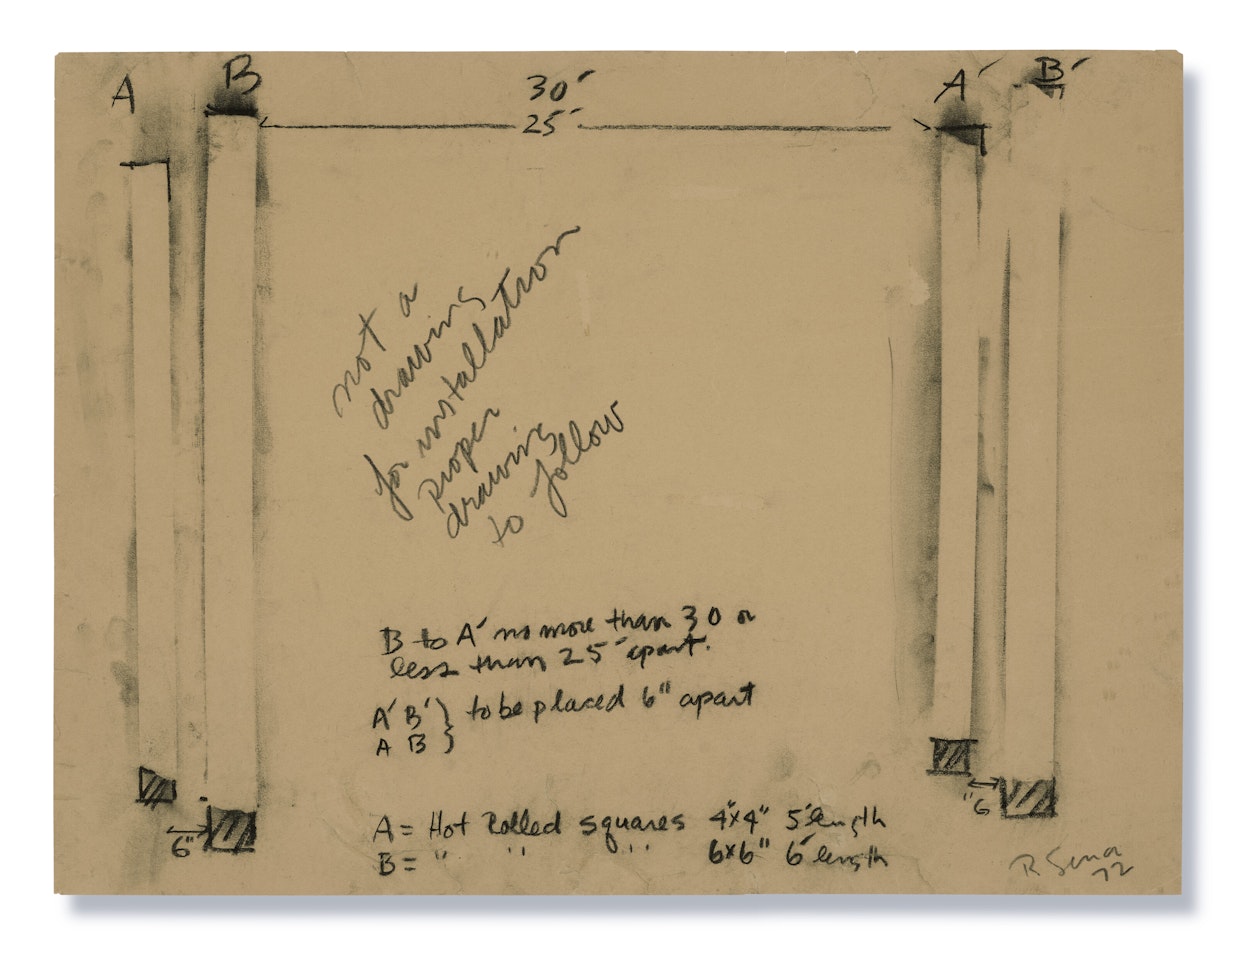 A B 30' A' B'
25'
not a
drawing
for installation
proper
drawing
to follow
B to A' no more than 30 or
less than 25' apart.
A' B' } to be placed 6" apart
A B
6"
"6
A = Hot Rolled squares 4"x4" 5' length
B = " " " 6x6" 6' length
R Serra
72